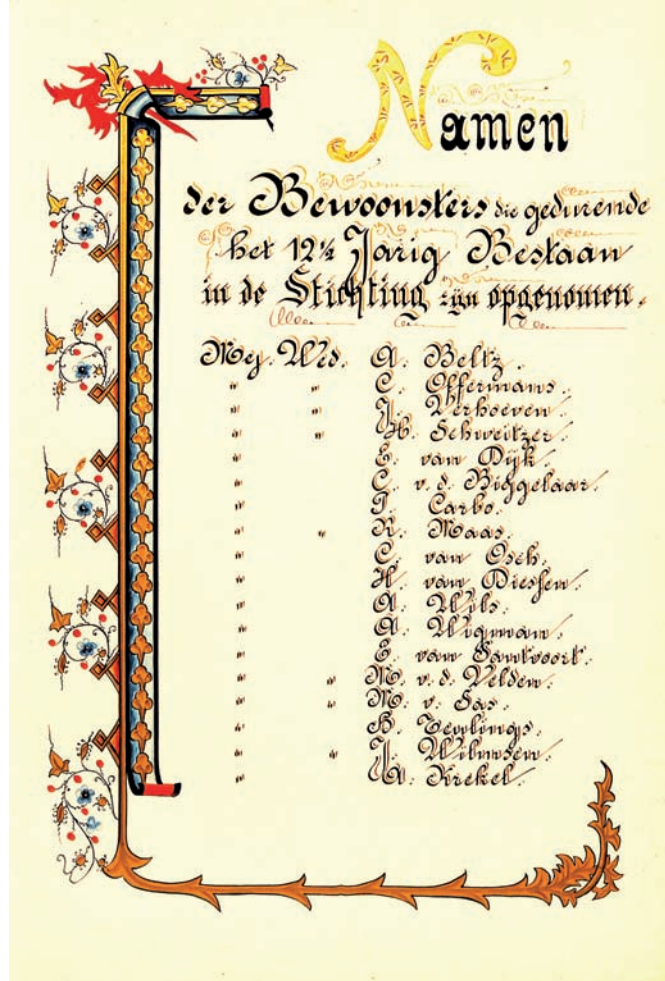 Namen
der Bewoonsters die gedurende
het 12½ Jarig Bestaan
in de Stichting zijn opgenomen.
Mej. Wed. A. Beltz.
" " C. Offermans.
" " J. Verhoeven.
" " H. Schweitzer.
" E. van Dijk.
" C. v.d. Biggelaar.
" J. Carbo.
" " R. Maas.
" C. van Osch.
" H. van Diessen.
" A. Wijls.
" A. Wigman.
" E. van Santvoort.
" " M. v.d. Velden.
" " M. v. Sas.
" B. Teulings.
" " J. Wilmsen.
" A. Krekel.